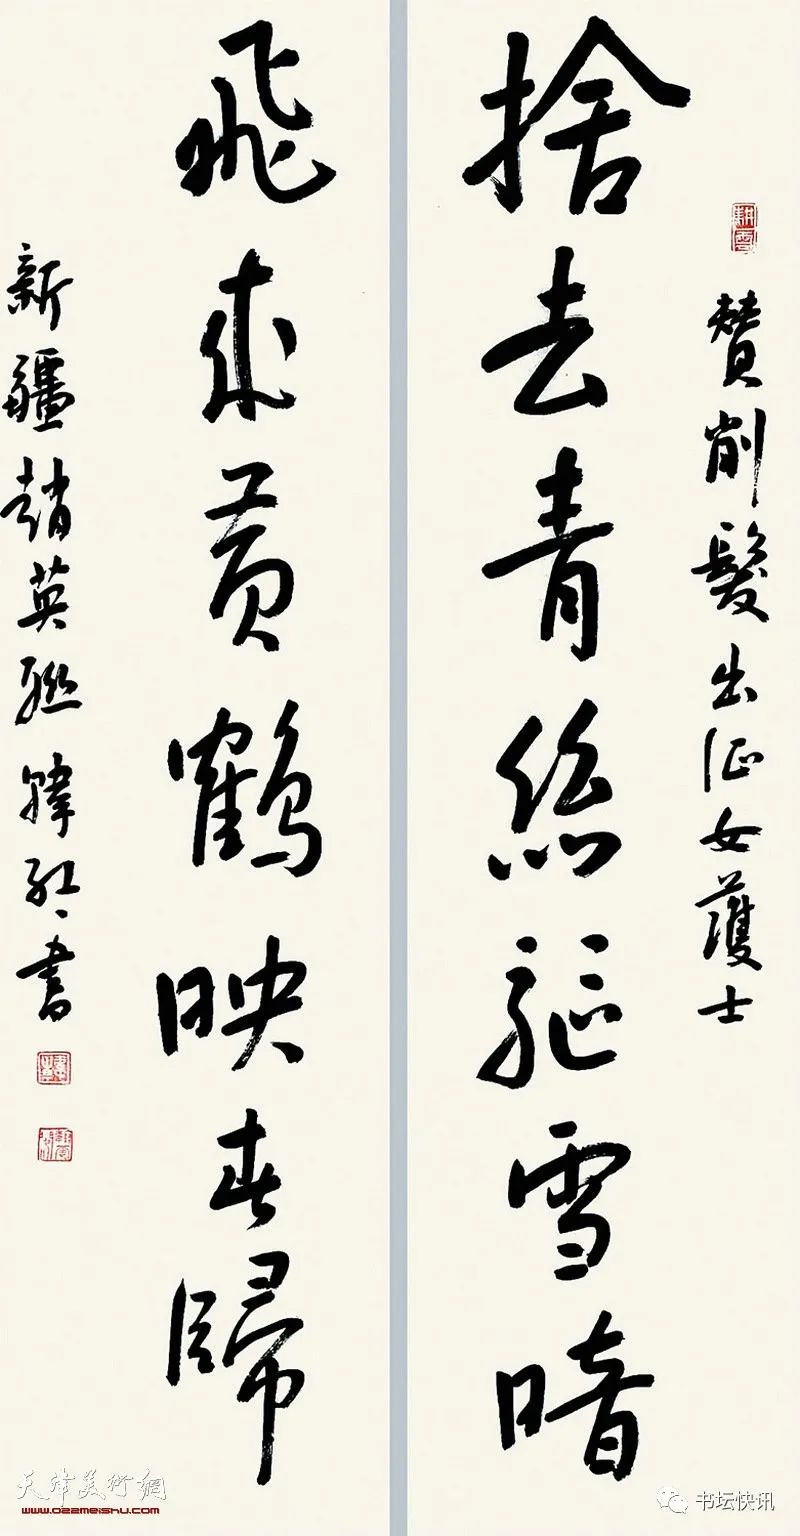 贊削髮出征女護士
捨去青絲驅雪暗
飛來黄鶴映春歸
新疆趙英聯 書
天津美術網
www.022meishu.com
书坛快讯